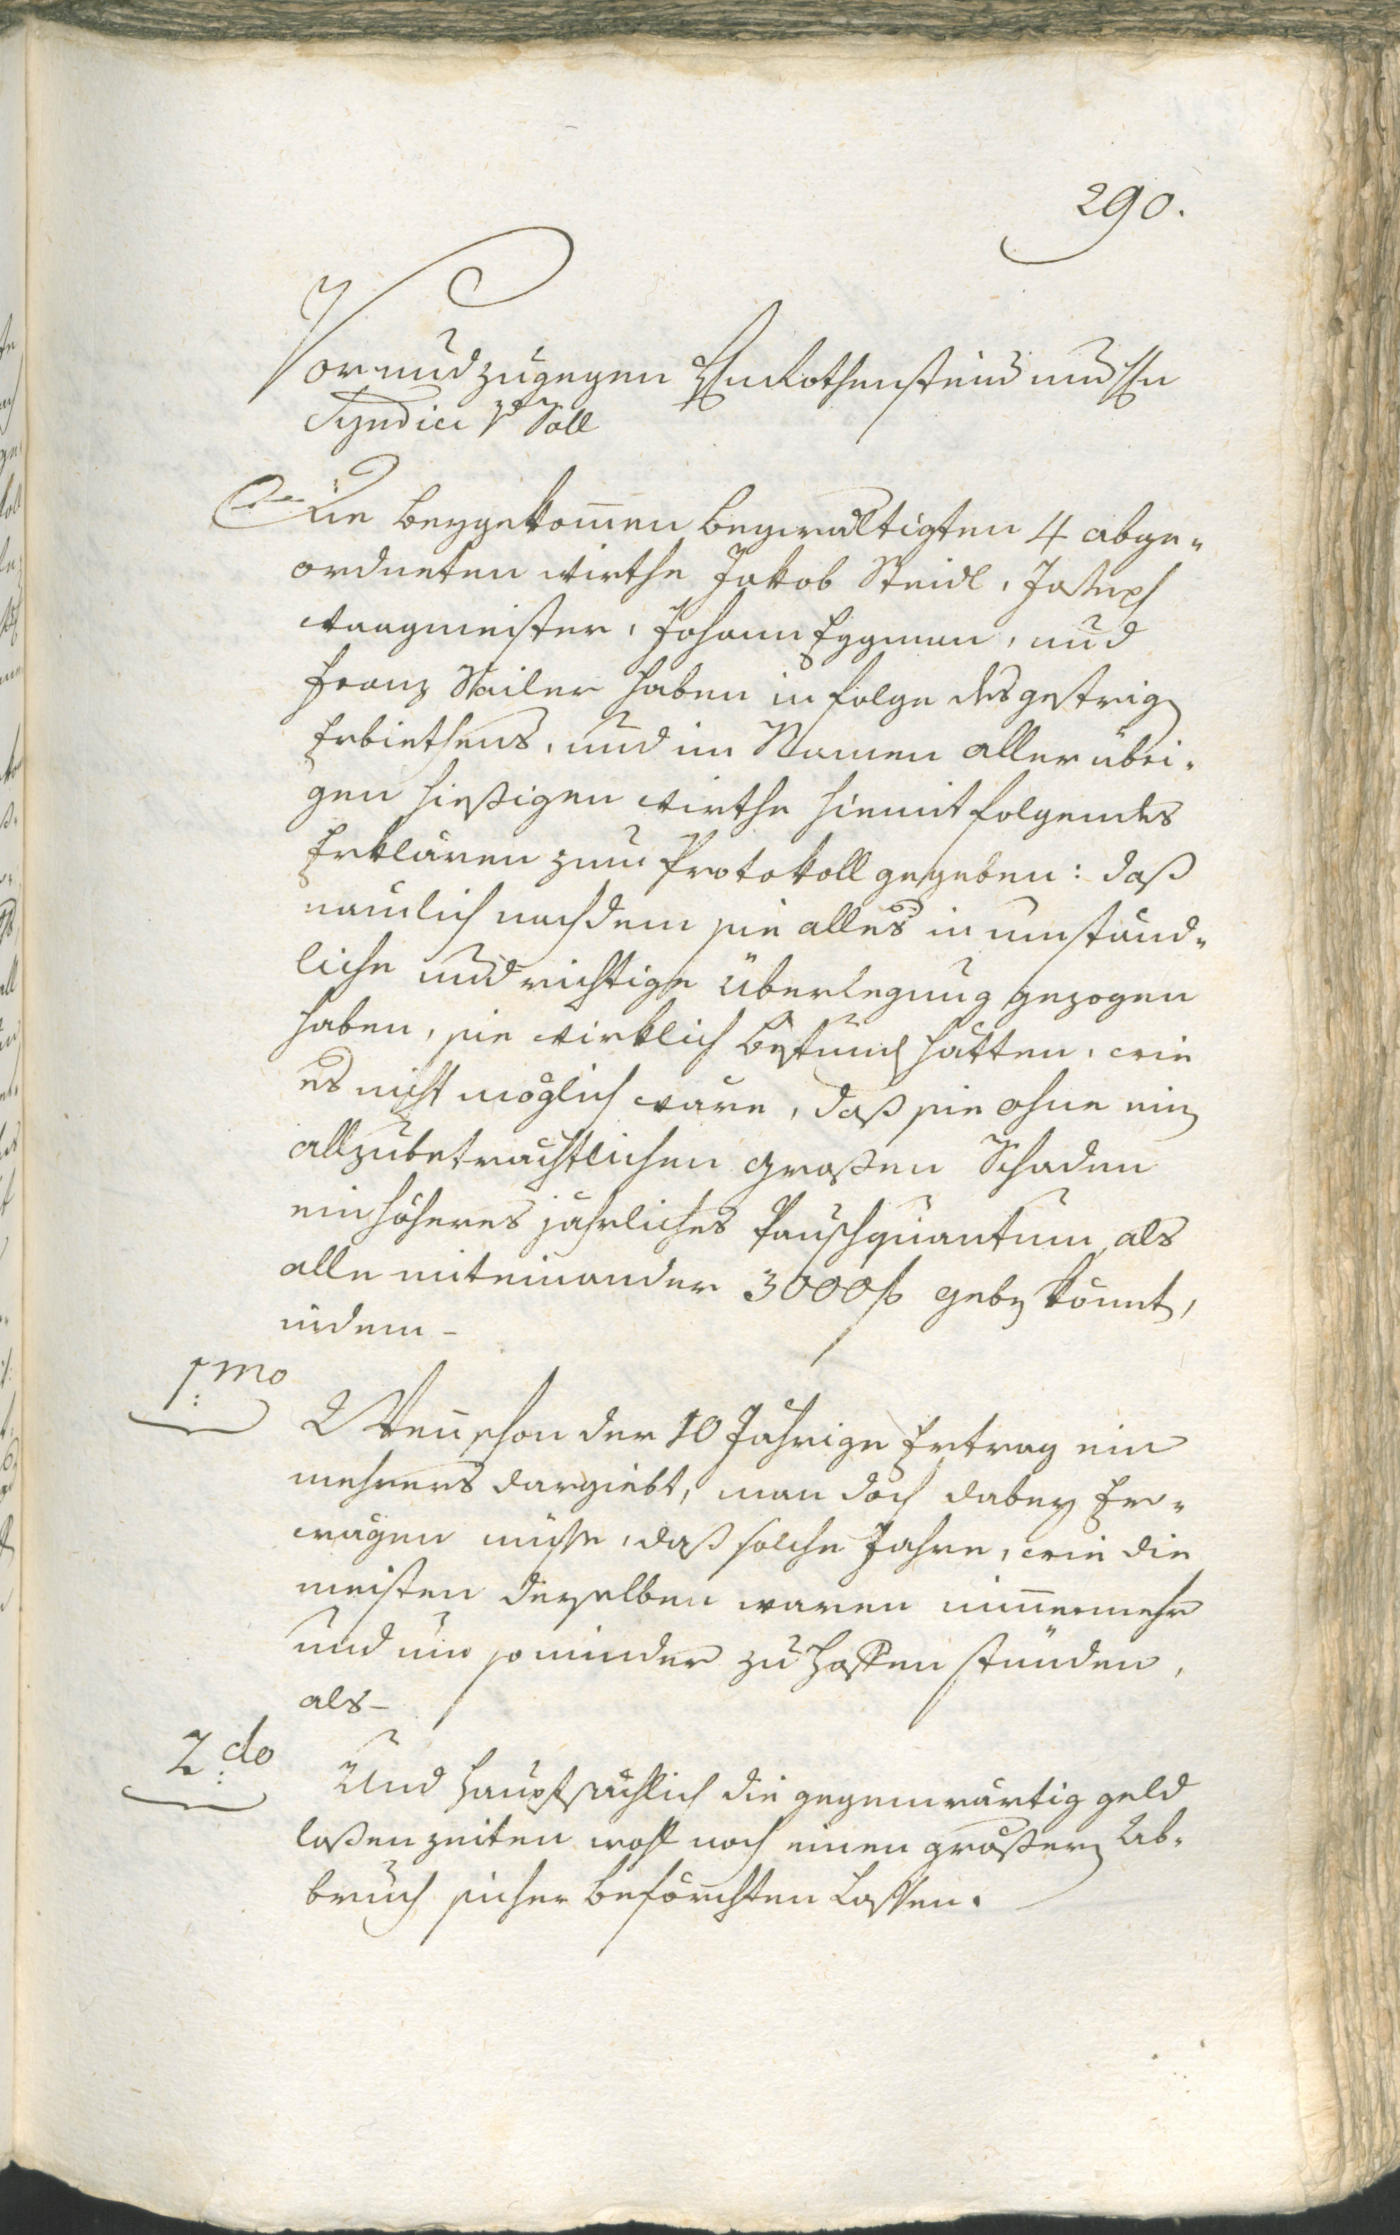 290.
Vor und zugegen Hn Rothensteins und Hn
Syndici v Söll
Die beygekom̄en begewaltigten 4 abge-
ordneten Wirthe Jakob Steidl, Joseph
Waagmeister, Johann Eggman, und
Franz Sailer haben in folge des gestrig
Erbiethens, und im Namen aller übri-
gen hießigen Wirthe hiemit folgendes
Erklären zum Protokoll gegeben: daß
namlich nachdem sie alles in umständ-
liche und richtige Überlegung gezogen
haben, sie wirklich befund hätten, wie
es nicht möglich wäre, daß sie ohne ein
allzubeträchtlichen großen Schaden
ein höheres jährliches Pauschquantum, als
alle miteinander 3000 f geben könnt,
indem -
1:mo
Wen̄ schon der 10 Jährige Ertrag ein
mehrers dargiebt, man doch dabey Er-
wägen müsse, daß solche Jahre, wie die
meisten derselben waren nim̄ermehr
und um so minder zu hoffen stünden,
als -
2:do
Und hauptsächlich die gegenwärtig geld
loßen zeiten wohl noch einen größern Ab-
bruch sicher beförchten lassen.